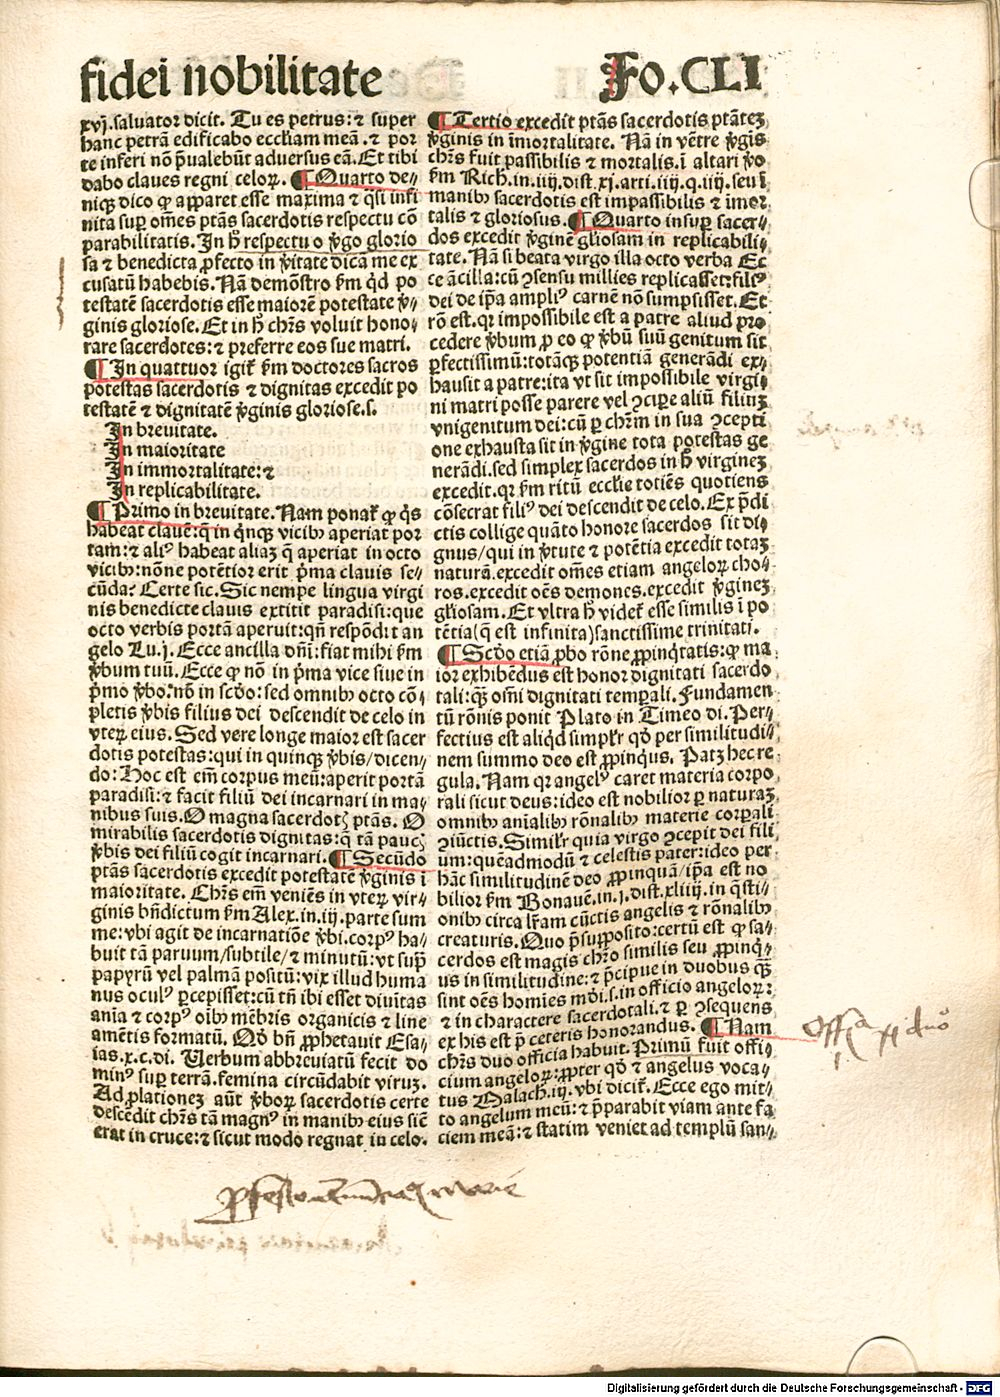 fidei nobilitate
Fo.CLI
xvj.saluator dicit. Tu es petrus:⁊ super
hanc petrã edificabo eccłiam meã.⁊ por
te inferi nõ p̃ualebũt aduersus eã.Et tibi
dabo claues regni celoꝝ. ¶Quarto de⸗
niqꝫ dico ꝙ apparet esse maxima ⁊ q̃si infi
nita sup̃ om̃es ptãs sacerdotis respectu cõ
parabilitatis.In h̃ respectu o ꝟgo glorio
sa ⁊ benedicta ꝓfecto in ꝟitate dicã me ex
cusatũ habebis.Nã demõstro ẜm q̃d po
testatẽ sacerdotis esse maiorẽ potestate ꝟ⸗
ginis gloriose.Et in h̃ chr̃s voluit hono⸗
rare sacerdotes:⁊ p̃ferre eos sue matri.
¶In quattuor igiť ẜm doctores sacros
potestas sacerdotis ⁊ dignitas excedit po
testatẽ ⁊ dignitatẽ ꝟginis gloriose.s.
In breuitate.
In maioritate
In immortalitate:⁊
In replicabilitate.
¶Primo in breuitate.Nam ponať ꝙ q̃s
habeat clauẽ:q̃ in q̃nqꝫ vicibꝰ aperiat por
tam:⁊ aliꝰ habeat aliaꝫ q̃ aperiat in octo
vicibꝰ:nõne potẽtior erit p̃ma clauis se⸗
cũda? Certe sic.Sic nempe lingua virgi
nis benedicte clauis extitit paradisi:que
octo verbis portã aperuit:qñ respõdit an
gelo Lu.j.Ecce ancilla dñi:fiat mihi ẜm
ꝟbum tuũ.Ecce ꝙ nõ in p̃ma vice siue in
p̃mo ꝟbo:nõ in sc̃do:sed omnibꝰ octo cõ⸗
pletis ꝟbis filius dei descendit de celo in
vterꝫ eius.Sed vere longe maior est sacer
dotis potestas:qui in quinqꝫ ꝟbis/dicen⸗
do:Hoc est em̃ corpus meũ:aperit portã
paradisi:⁊ facit filiũ dei incarnari in ma⸗
nibus suis.O magna sacerdotꝭ ptãs. O
mirabilis sacerdotis dignitas:q̃ tã paucꝭ
ꝟbis dei filiũ cogit incarnari.¶Secũdo
ptãs sacerdotis excedit potestatẽ ꝟginis ĩ
maioritate. Chr̃s em̃ veniẽs in vterꝫ vir⸗
ginis bñdictum ẜm Alex.in.iij.parte sum
me:vbi agit de incarnatiõe ꝟbi.corpꝰ ha⸗
buit tã paruum/subtile/⁊ minutũ:vt sup̃
papyrũ vel palmã positũ:vix illud huma
nus oculꝰ ꝑcepisset:cũ tñ ibi esset diuĩtas
añia ⁊ corpꝰ oĩbꝰ mẽbris organicis ⁊ line
amẽtis formatũ. Qð bñ ꝓphetauit Esa⸗
ias.x.c.di. Uerbum abbreuiatũ fecit do
minꝰ sup̃ terrã.femina circũdabit viruꝫ.
Ad ꝓlationeꝫ aũt ꝟboꝝ sacerdotis certe
descẽdit chr̃s tã magnꝰ in manibꝰ eius sic̃
erat in cruce:⁊ sicut modo regnat in celo.
¶Tertio excedit ptãs sacerdotis ptãteꝫ
ꝟginis in ĩmortalitate. Nã in vẽtre ꝟgĩs
chr̃s fuit passibilis ⁊ mortalis.ĩ altari ꝟo
ẜm Rich.in.iiij.dist.xj.arti.iiij.q.iiij.seu ĩ
manibꝰ sacerdotis est impassibilis ⁊ imor
talis ⁊ gloriosus.¶Quarto insup̃ sacer⸗
dos excedit ꝟginẽ gl̃iosam in replicabili⸗
tate.Nã si beata virgo illa octo verba Ec
ce ãcilla:cũ ꝯsensu millies replicasset:filiꝰ
dei de ip̃a ampliꝰ carnẽ nõ sumpsisset.Et
rõ est.qꝛ impossibile est a patre aliud pro
cedere ꝟbum ꝓ eo ꝙ ꝟbũ suũ genitum sit
ꝑfectissimũ:totãqꝫ potentiã generãdi ex⸗
hausit a patre:ita vt sit impossibile virgi⸗
ni matri posse parere vel ꝯcipe aliũ filiuꝫ
vnigenitum dei:cũ ꝑ chr̃m in sua ꝯcepti
one exhausta sit in ꝟgine tota potestas ge
nerãdi.sed simplex sacerdos in h̃ virgineꝫ
excedit.qꝛ ẜm ritũ eccłie totiẽs quotiens
cõsecrat filiꝰ dei descendit de celo.Ex p̃di
ctis collige quãto honore sacerdos sit di⸗
gnus/qui in ꝟtute ⁊ potẽtia excedit totaꝫ
naturã.excedit om̃es etiam angeloꝝ cho⸗
ros.excedit oẽs demones.excedit ꝟgineꝫ
gl̃iosam.Et vltra h̃ videť esse similis ĩ po
tẽtia(q̃ est infinita)sanctissime trinitati.
¶Sc̃do etiã ꝓbo rõne ꝓpinq̃tatis:ꝙ ma
ior exhibẽdus est honor dignitati sacerdo
tali:qꝫ̃ om̃i dignitati temꝑali.Fundamen
tũ rõnis ponit Plato in Timeo di.Per⸗
fectius est aliq̃d simpłr qð per similitudi⸗
nem summo deo est ꝓpinq̃us. Patꝫ hec re
gula.Nam qꝛ angelꝰ caret materia corpo
rali sicut deus:ideo est nobilior ꝑ naturaꝫ
omnibꝰ añialibꝰ rõnalibꝰ materie corꝑali
ꝯiũctis.Similr̃ quia virgo ꝯcepit dei fili
um:quẽadmodũ ⁊ celestis pater:ideo per
hãc similitudinẽ deo ꝓpinquã/ip̃a est no
bilior ẜm Bonauẽ.in.j.dist.xliiij.in q̃sti⸗
onibꝰ circa lr̃am cũctis angelis ⁊ rõnalibꝰ
creaturis.Quo p̃supposito:certũ est ꝙ sa⸗
cerdos est magis chr̃o similis seu ꝓpinq̃⸗
us in similitudine:⁊ p̃cipue in duobus qꝫ̃
sint oẽs homĩes mðĩ.s.in officio angeloꝝ:
⁊ in charactere sacerdotali.⁊ ꝑ ꝯsequens
ex his est p̃ ceteris honorandus. ¶Nam
chr̃s duo officia habuit.Primũ fuit offi⸗
cium angeloꝝ:ꝓpter qð ⁊ angelus voca⸗
tus Malach.iij.vbi diciť.Ecce ego mit⸗
to angelum meũ:⁊ p̃parabit viam ante fa
ciem meã:⁊ statim veniet ad templũ san⸗